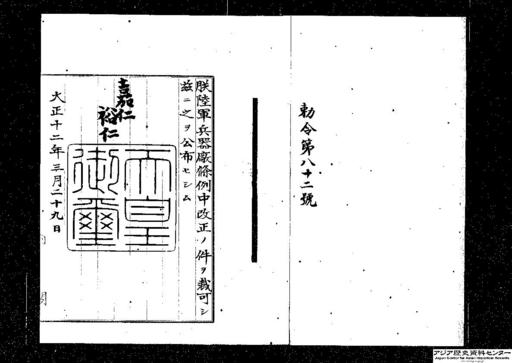 勅令第八十二號
朕陸軍兵器廠條例中改正ノ件ヲ裁可シ
玆ニ之ヲ公布セシム
嘉仁
裕仁
天皇
御璽
大正十二年三月二十九日
アジア歴史資料センター
Japan Center for Asian Historical Records